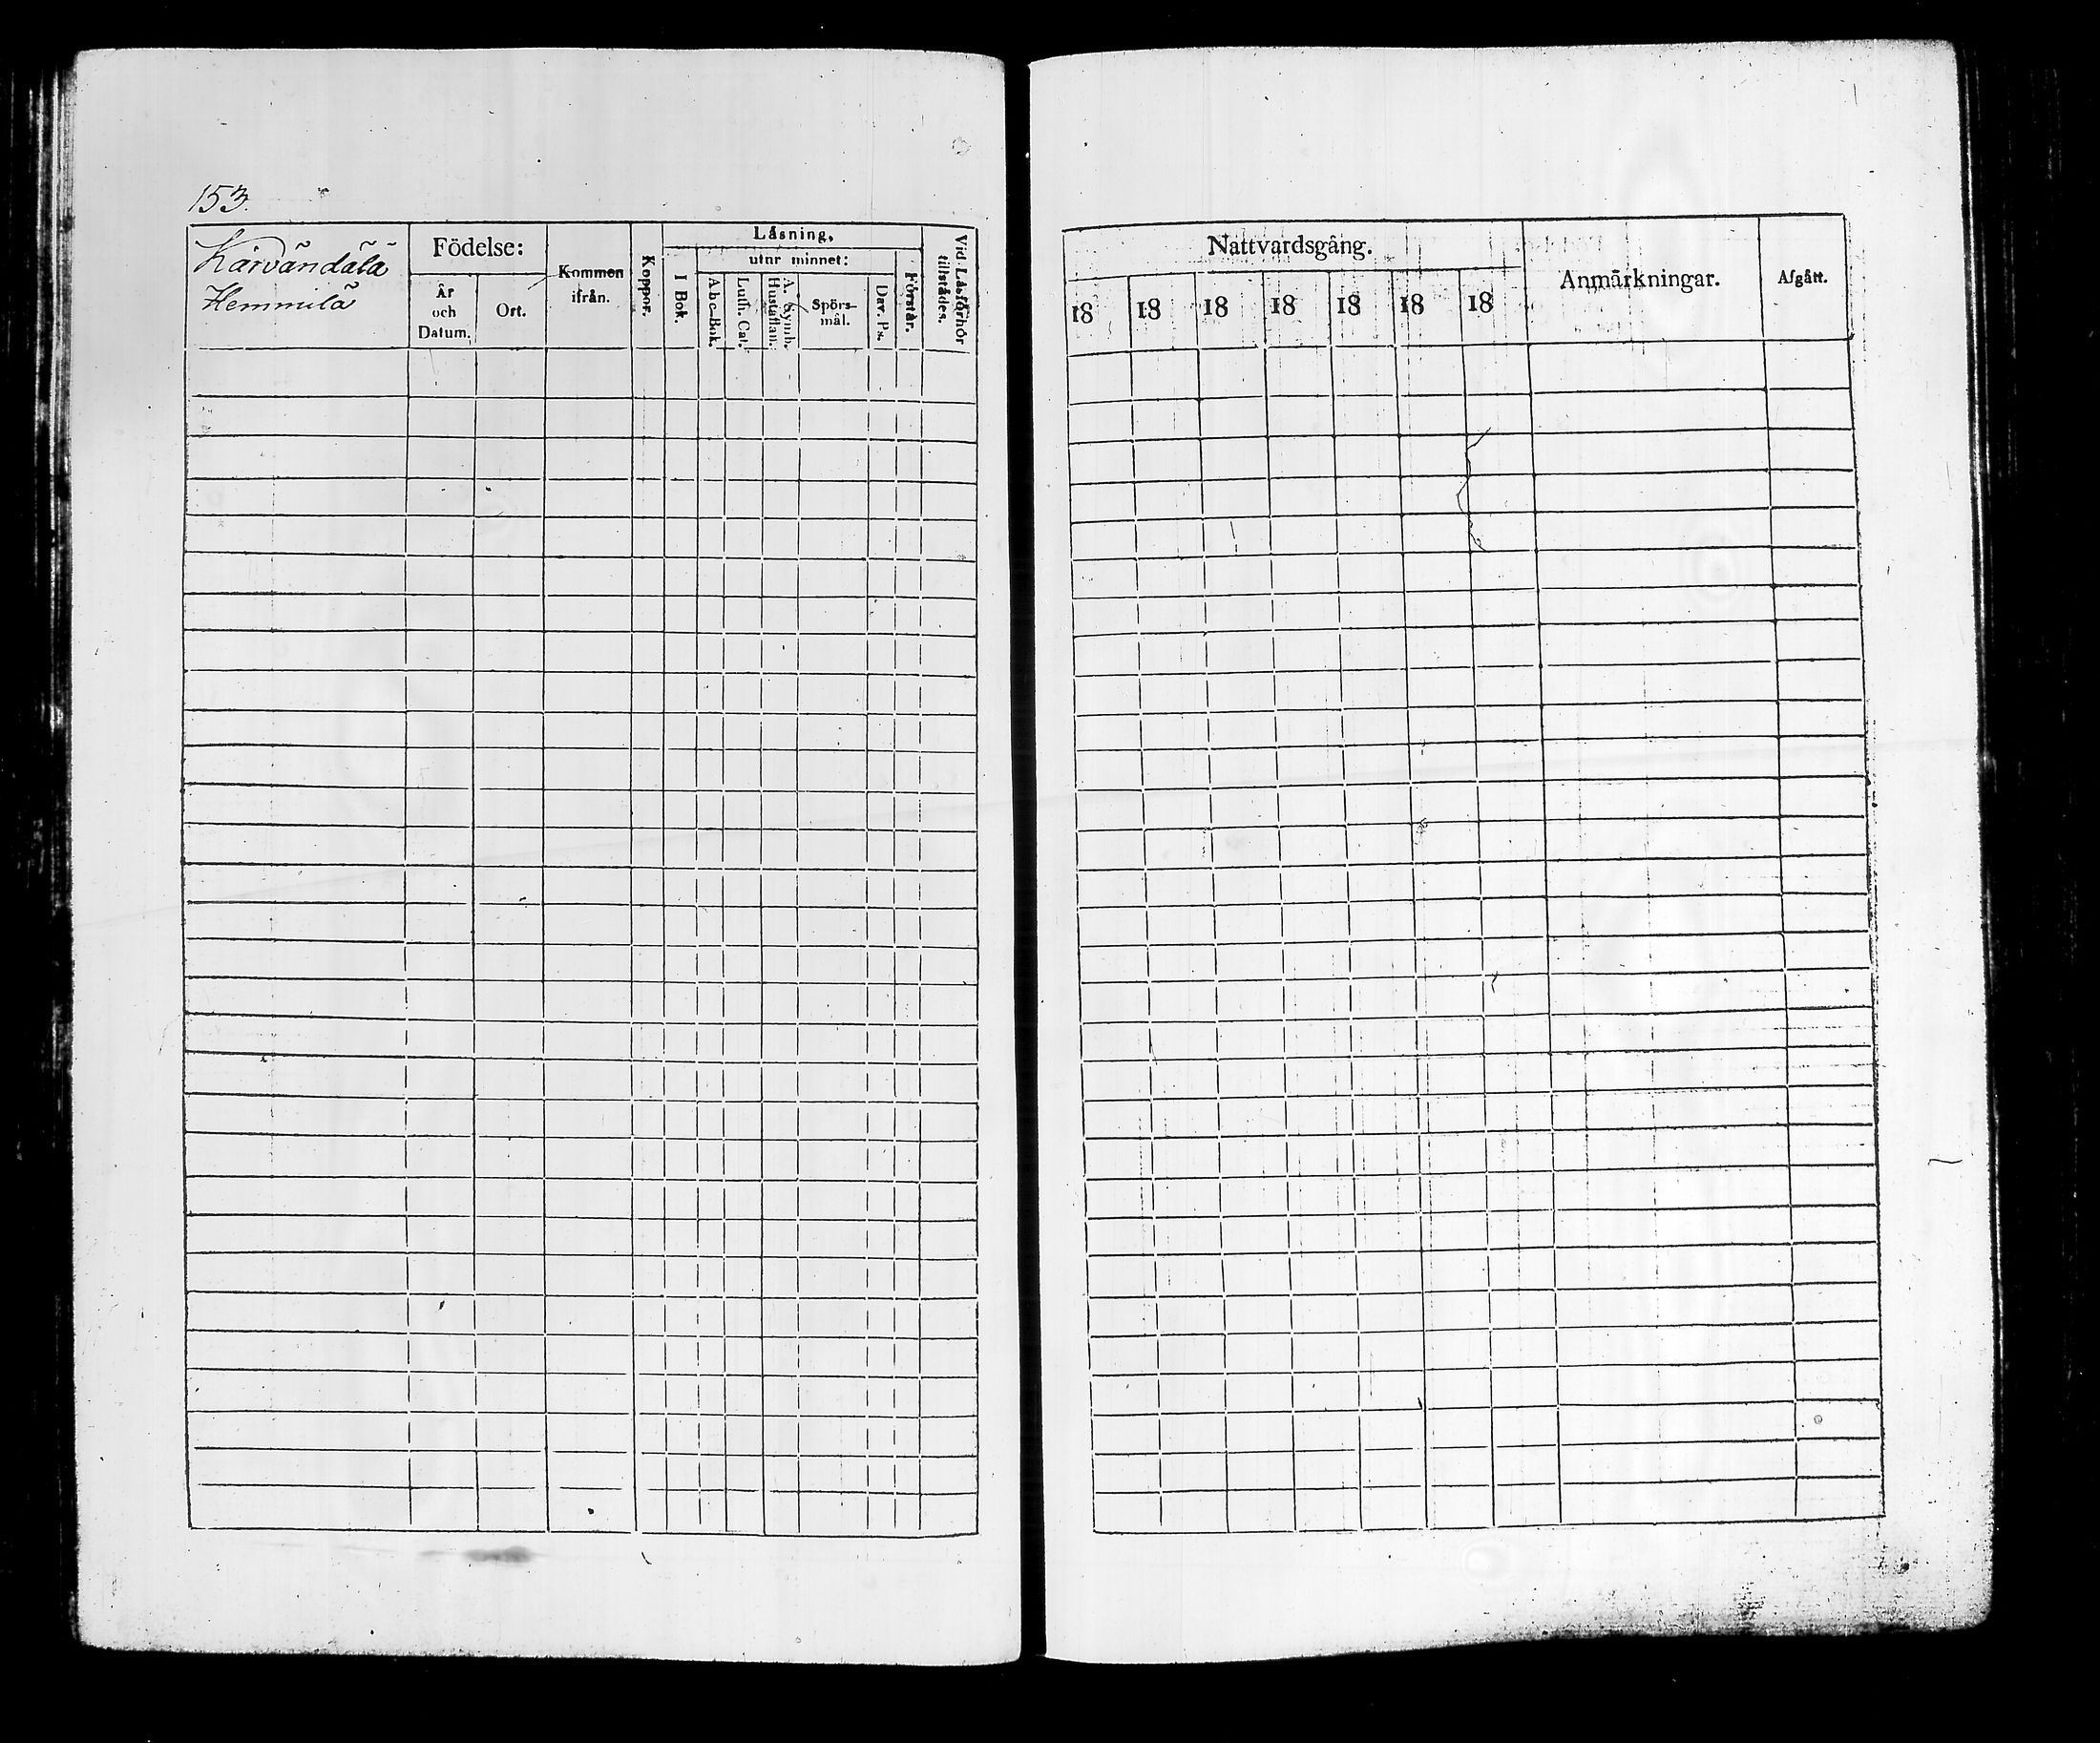 153.
Kärvändälä
Hemmilä
Födelse:
År
och
Datum.
Ort.
Kommen
ifrån.
Koppor.
Låsning,
utur minnet:
I Bok.
Abc-Bok.
Luth. Cat.
A. Symb.
Hustaflan.
Spörs-
mål.
Dav. Ps.
Förstår.
Vid Låsförhör
tillstådes.
Nattvardsgång.
18 18 18 18 18 18 18
Anmärkningar.
Afgått.